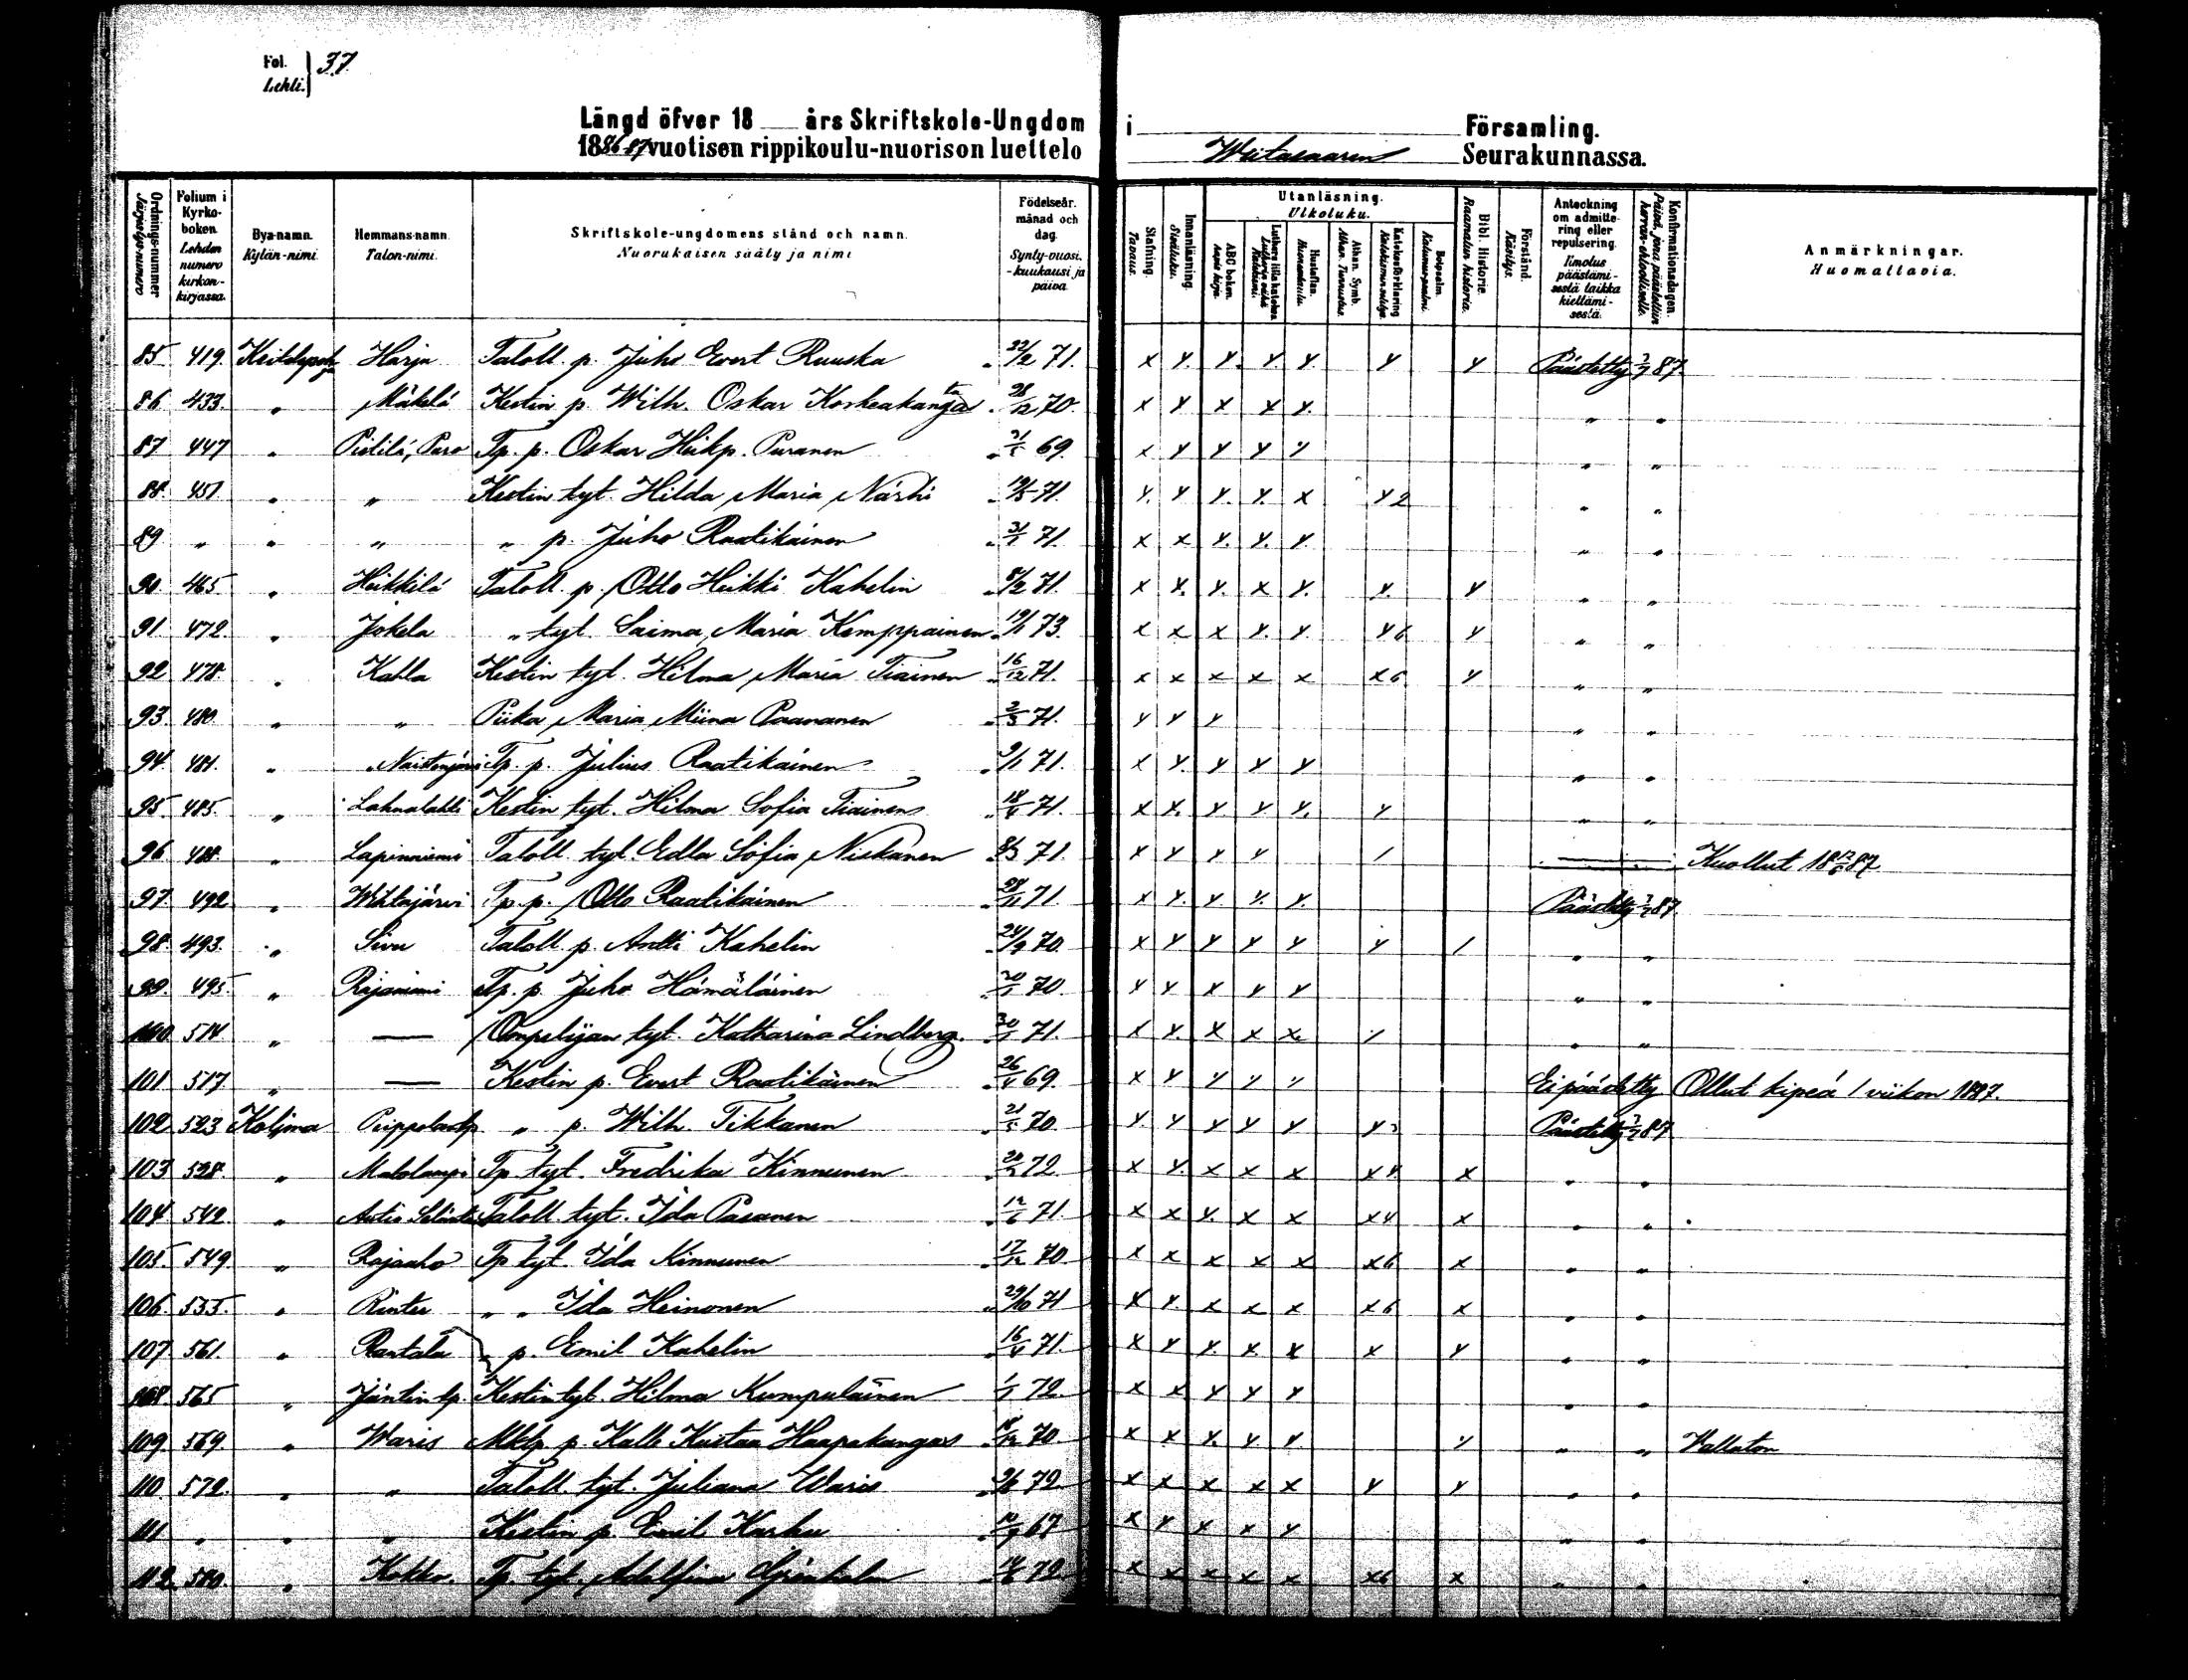 Fol. Lehti. } 37.
Längd öfver 18 ___ års Skriftskole-Ungdom i ___ Församling.
1886-87 vuotisen rippikoulu-nuorison luettelo Wiitasaaren Seurakunnassa.
Ordnings-nummer Järjestys-numero
Folium i Kyrko-boken. Lehden numero kirkon-kirjassa.
Bya-namn. Kylän-nimi.
Hemmans-namn. Talon-nimi.
Skriftskole-ungdomens stånd och namn. Nuorukaisen sääty ja nimi
Födelseår. månad och dag. Synty-vuosi. -kuukausi ja päivä
Stafning. Tavaus.
Innanläsning. Sisäluku.
Utanläsning. Ulkoluku.
ABC boken. Aapis kirja.
Luthers lilla katekes. Lutherin vähä Katekismi.
Hustaflan. Huoneentaulu.
Athan. Symb. Athan. Tunnustus.
Katekesförklaring Katekismus selitys.
Botpsalm. Katumus-psalmi.
Bibl. Historie. Raamatun historia.
Förstånd. Käsitys.
Anteckning om admitte-ring eller repulsering. Ilmotus päästämi-sestä taikka kieltämi-sestä.
Konfirmationsdagen. Päivä, jona päästettiin herran-ehtoolliselle.
Anmärkningar. Huomattavia.
85 419. Keitelepohja Harju Taloll. p. Juho Evert Ruuska 22/2 71. x y. y. y. y. y y Päästetty 3/7 87.
86 433. " Mäkelä Kestin p. Wilh. Oskar Koskeakangas 28/12 70. x y x x y. " "
87 447 " Pistilä, Puro Tp. p. Oskar Heikp. Puranen 69. x y y y y " "
88. 451 " " Kestin tyt. Hilda Maria Närhi 71. y. y y. y. x y 2 " "
89 " " " " p. Juho Raatikainen 31/1 71. x x y. y. y. " "
90. 465 " Heikkilä Taloll. p. Otto Heikki Kahelin 71. x y. y. x y. y. y " "
91 472. " Jokela " tyt. Saima Maria Kemppainen 19/1 73. x x x y. y. y 6 y " "
92 478. " Kahla Kestin tyt. Hilma Maria Tiainen 16/12 71. x x x x x x 6 y " "
93. 480. " " Piika Maria Miina Paananen 2/3 71. y y y " "
94. 481. " Tp. p. Julius Raatikainen 9/1 71. x y. y y y " "
95. 485. " Lahnalahti Kestin tyt. Hilma Sofia Tiainen 71. x x. y. y. y. y " "
96 488. " Lapinniemi Taloll. tyt. Edla Sofia Niskanen 71. x y y y / — Kuollut 18 87.
97. 492 " Wihtajärvi Tp. p. Otto Raatikainen 28/11 71 x y. y y. y. Päästetty 3/7 87.
98. 493. " Sivu Taloll. p. Antti Kahelin 24/9 70. x y y y y y / " "
99. 495. " Rajaniemi Tp. p. Juho Hämäläinen 70. y y x y y " "
100. 514 " — Ompelijan tyt. Katharina Lindberg. 71. x y. x x x. y " "
101. 517. " — Kestin p. Evert Raatikainen 69. x y y y y Ei päästetty Ollut kipeä 1 viikon 1887.
102 523 Kolima " p. Wilh. Tikkanen 70. y y y y y y Päästetty 3/7 87
103 528. " Matolampi Tp. tyt. Fredrika Kinnunen 72. x y. x x x x 4. x " "
104 542. " Taloll. tyt. Ida Pasanen 71. x x y. x x x 4 x " "
105. 549. " Rajaaho Tp tyt. Ida Kinnunen 17/12 70. x x x x x x 6 x " "
106. 555. " " " Ida Heinonen 29/10 71 x y. x x x x 6 x " "
107. 561. " Rantala " p. Emil Kahelin 71. x y y. x x x y " "
108. 565 " Jäntin tp. Kestin tyt. Hilma Kumpulainen 1/1 72. x x y y y " "
109 569. " Waris Mktp p. Kalle Kustaa Haapakangas 70. x x y. y y. y " " Hallaton
110. 572. " " Taloll. tyt. Juliana Waris 72. x x x x x y y " "
111 " " " Kestin p. Emil Karhu 67 x y x x y " "
112 580. " Kokko. Tp. tyt. 72. x x x x x x6 x " "